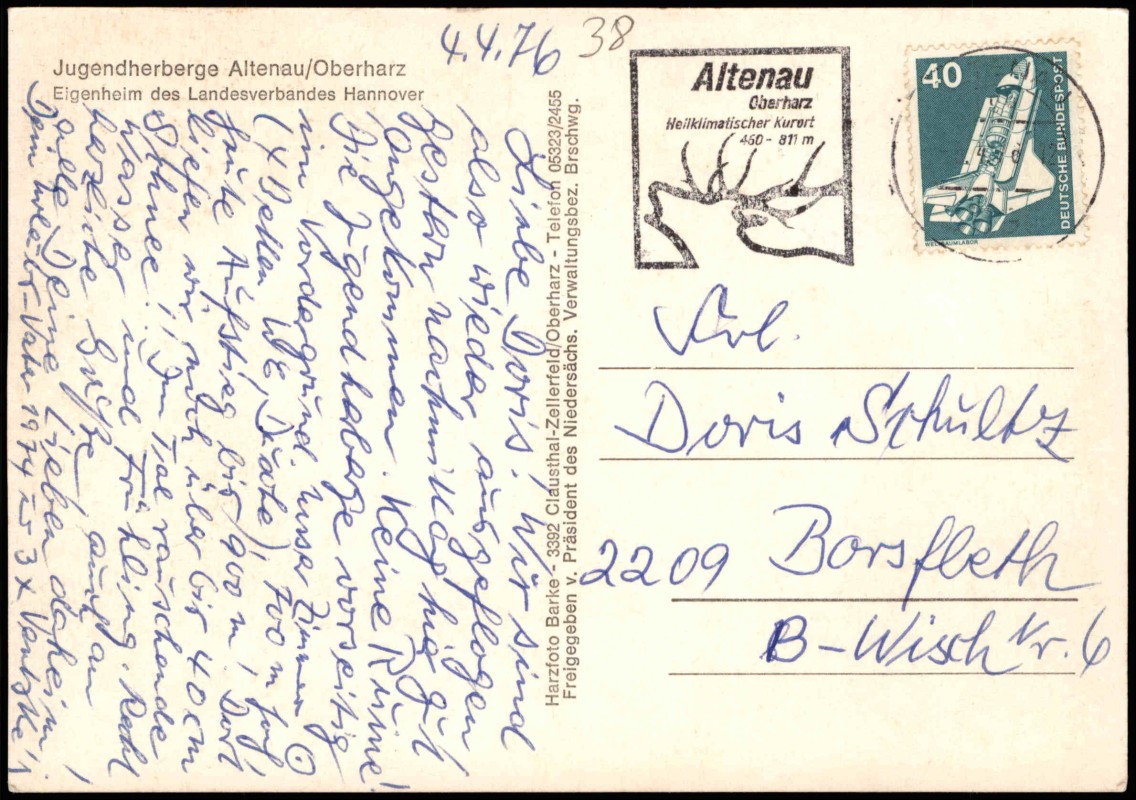 4.4.76
38
Jugendherberge Altenau/Oberharz
Eigenheim des Landesverbandes Hannover
Liebe Doris! Wir sind
also wieder ausgeflogen
gestern nachmittag hier gut
angekommen. Keine Ruine!
Die Jugendherberge vorseitig
im Vordergrund, unser Zimmer
(4 Betten, WC, Dusche), 700 m hoch
heute Aufstieg bis 900 m, dort
liefen wir noch über bis 40 cm
Schnee!! Im Tal rauschende
Wasser und Frühling. Recht
herzliche Grüße auch an
alle Deine Lieben daheim!
Dein
Vater 1974 = 3 x
Harzfoto Barke - 3392 Clausthal-Zellerfeld/Oberharz - Telefon 05323/2455
Freigegeben v. Präsident des Niedersächs. Verwaltungsbez. Brschwg.
Altenau
Oberharz
Heilklimatischer Kurort
460 - 811 m
40
DEUTSCHE BUNDESPOST
WELTRAUMLABOR
Frl.
Doris Schultz
2209 Borsfleth
B-Wisch Nr. 6